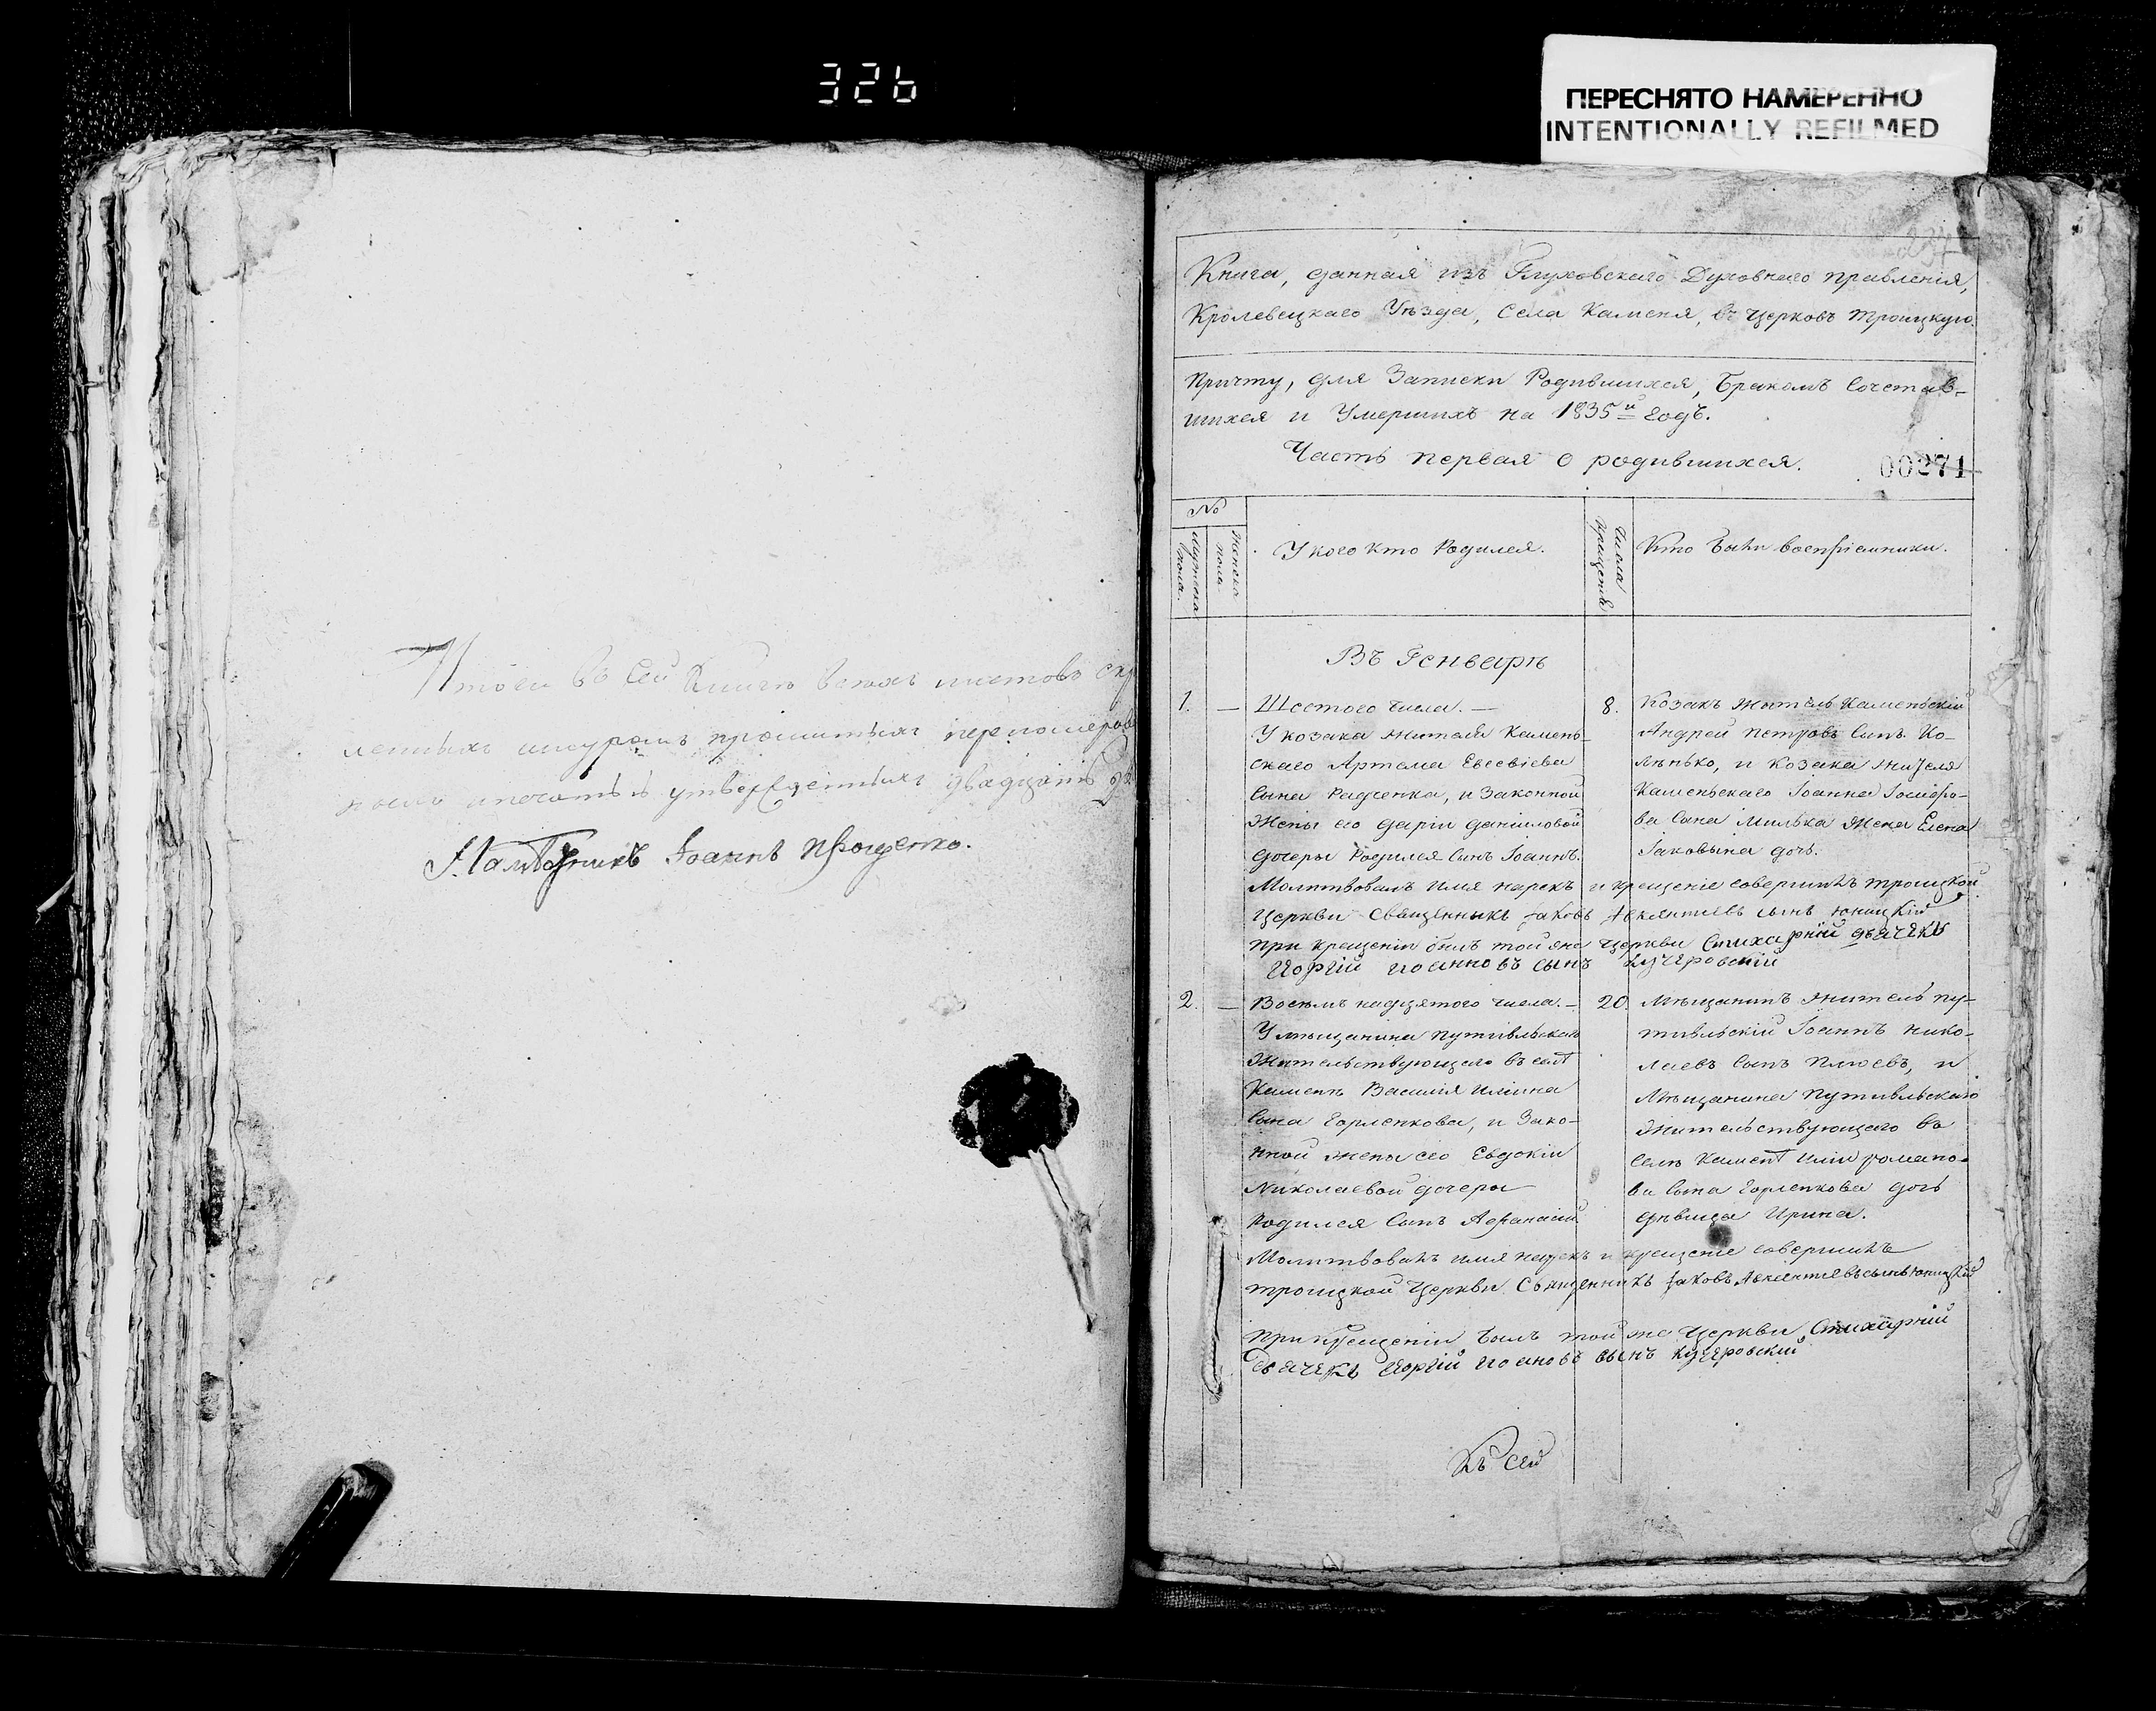 326
ПЕРЕСНЯТО НАМЕРЕННО
INTENTIONALLY REFILMED
Итого въ сей Книгѣ всѣхъ листовъ скр
ленныхъ шнуромъ прошитыхъ
печатью утвержденныхъ двадцать
Іоаннъ Прощенко.
Книга, данная изъ Глуховскаго Духовнаго правленія,
Кролевецкаго Уѣзда, Села Каменя, въ Церковь Троицкую
Причту, для Записки Родившихся, Бракомъ Сочетав-
шихся и Умершихъ на 1835й годъ.
Часть первая о родившихся.
00271
№
Мужеска пола.
Женска пола
У кого кто Родился.
Числа Крещенія
Кто были воспріемники.
Въ Генварѣ
1. — Шестого числа. — 8. Козакъ житель Каменьскій
У козака жителя Камень- Андрей Петровъ Сынъ Ко-
скаго Артема Евсевіева лѣнько, и Козака жителя
Сына Радченка, и Законной Каменьскаго Іоанна
Жены его Даріи Даніиловой ва Сына Милька Жена Елена
дочеры Родился Сынъ Іоаннъ. Іаковына дочь.
Молитвовалъ имя нарекъ и крещеніе совершилъ троицкой
Церкви Священникъ Іаковъ сынъ Юницкій
При крещеніи былъ той же Церкви Стихарный дьячекъ
Иоанновъ сынъ Кучеровскій
2. — Восѣмь надцятого числа. — 20. Мѣщанинъ житель пу-
У мѣщанина Путивльскаго тивльскій Іоаннъ Нико-
Жительствующаго въ селѣ лаевъ Сынъ Плюевъ, и
Каменѣ Василія Иліина Мѣщанина Путивльскаго
Сына Горленкова, и Зако- Жительствующаго во
нной жены его Евдокіи Селѣ Каменѣ Иліи романо-
Николаевой дочеры ва Сына Горленкова дочь
Родился Сынъ Афанасій. дѣвица Ирина.
Молитвовалъ имя нарекъ и крещеніе совершилъ
троицкой Церкви Священникъ Іаковъ сынъ Юницкій
При крещеніи былъ той же Церкви Стихарный
Дьячекъ Иоановъ сынъ Кучеровскій
Къ сей